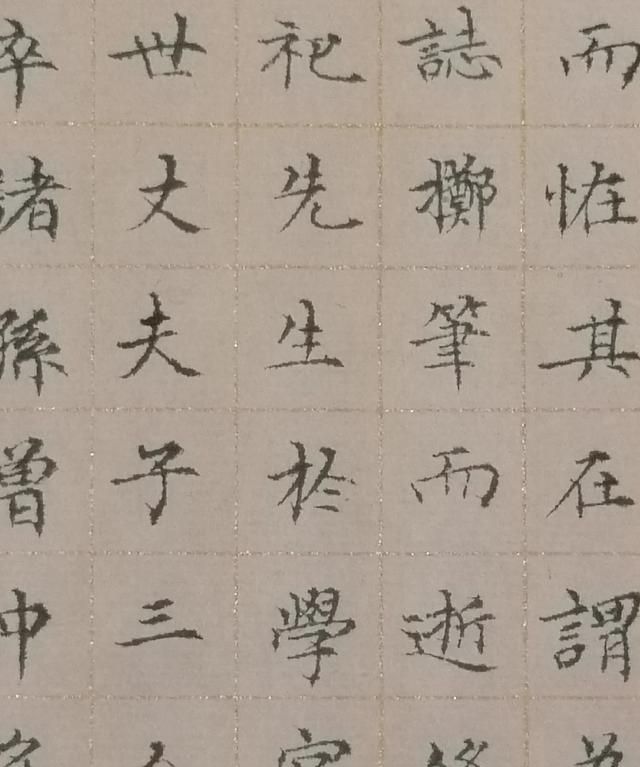 而恠其在謂
誌擲筆而逝
祀先生於學宮
世丈夫子三
卒諸孫曾中